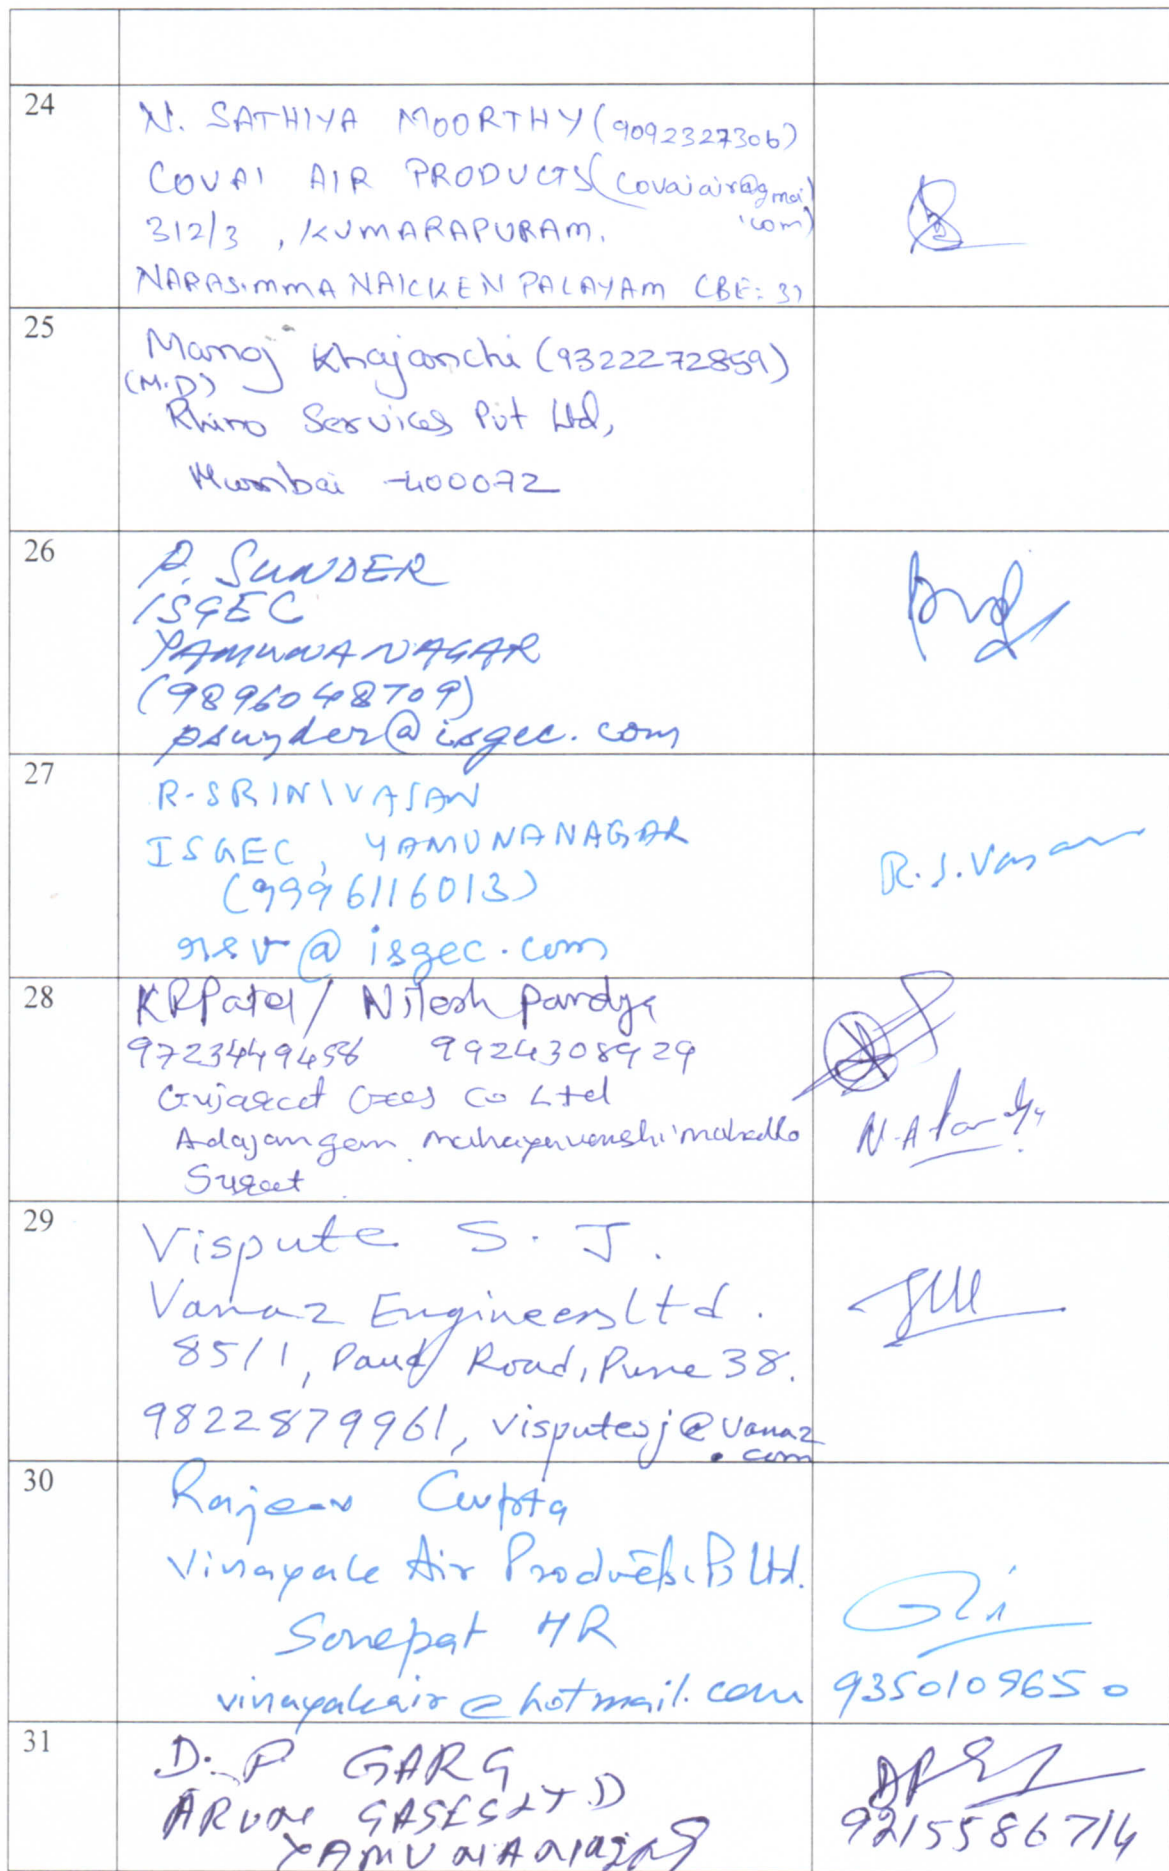 24
N. SATHIYA MOORTHY (9092327306)
COVAI AIR PRODUCTS (covaiair@gmai
312/3 , KUMARAPURAM. .com)
NARASIMMA NAICKEN PALAYAM CBE: 31
25
Manoj Khajanchi (9322272859)
(M.D)
Rhino Services Pvt Ltd,
Mumbai -400072
26
P. SUNDER
ISGEC
YAMUNA NAGAR
(9896048709)
psunder@isgec.com
27
R. SRINIVASAN
ISGEC, YAMUNANAGAR
R.S.Vasan
(9996116013)
rsv@isgec.com
28
KRPatel / Nilesh Pandya
9723449458 9924308929
Gujarat Gas Co Ltd
Adajangam
N.A Pandya
Surat
29
Vispute S. J.
Vanaz Engineers Ltd.
85/1, Paud Road, Pune 38.
9822879961, visputesj@vanaz
.com
30
Rajeev Gupta
Vinayak Air Products P Ltd.
Sonepat HR
vinayakair@hotmail.com 9350109650
31
D. P GARG
ARUN GASES LTD
YAMUNANAGAR 9215586714